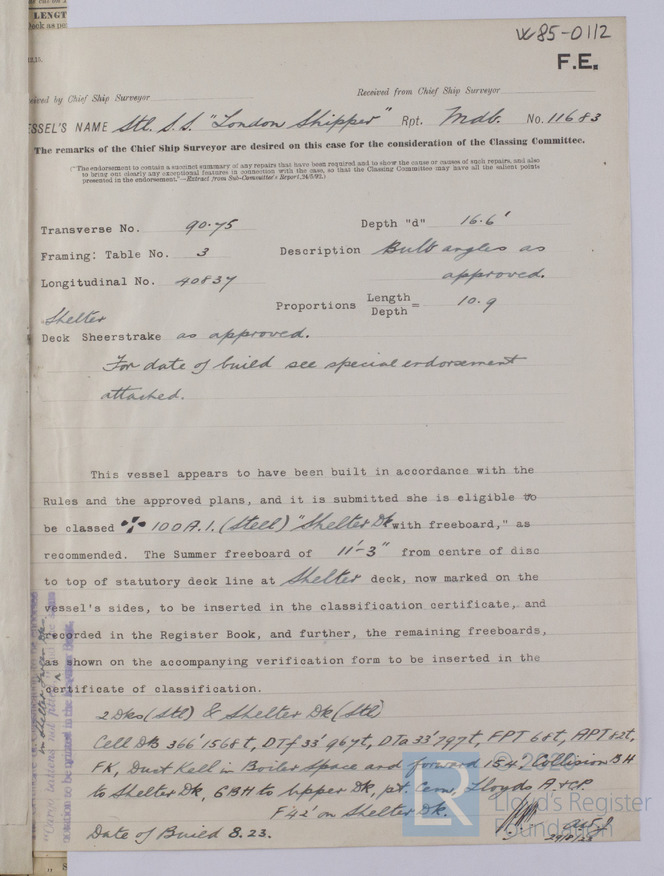 LENGT
W85-0112
F.E.
eived by Chief Ship Surveyor
Received from Chief Ship Surveyor
ESSEL'S NAME Stl. S.S. "London Shipper" Rpt. Mdb. No. 11683
The remarks of the Chief Ship Surveyor are desired on this case for the consideration of the Classing Committee.
("The endorsement to contain a succinct summary of any repairs that have been required and to show the cause or causes of such repairs, and also
to bring out clearly any exceptional features in connection with the case, so that the Classing Committee may have all the salient points
presented in the endorsement."—Extract from Sub-Committee's Report, 24/5/92.)
Transverse No. 90.75 Depth "d" 16.6'
Framing: Table No. 3 Description Bulb angles as
Longitudinal No. 40837 approved.
Proportions Length
Depth = 10.9
Shelter
Deck Sheerstrake as approved.
For date of build see special endorsement
attached.
This vessel appears to have been built in accordance with the
Rules and the approved plans, and it is submitted she is eligible to
be classed 100A.1. (Steel) "Shelter Dk with freeboard," as
recommended. The Summer freeboard of 11'-3" from centre of disc
to top of statutory deck line at Shelter deck, now marked on the
vessel's sides, to be inserted in the classification certificate, and
recorded in the Register Book, and further, the remaining freeboards,
as shown on the accompanying verification form to be inserted in the
certificate of classification.
2 Dks (Stl) & Shelter Dk (Stl)
Cell DB 366' 1568t, DTf 33' 967t, DTa 33' 797t, FPT 68t, APT 82t.
FK, Duct Keel in Boiler Space and forward 154' Collision BH
to Shelter Dk, 6BH to upper Dk, pt. Cem, Lloyds A & CP.
F 42' on Shelter Dk.
Date of Build 8.23.
29/8/23
Lloyd's Register
Foundation